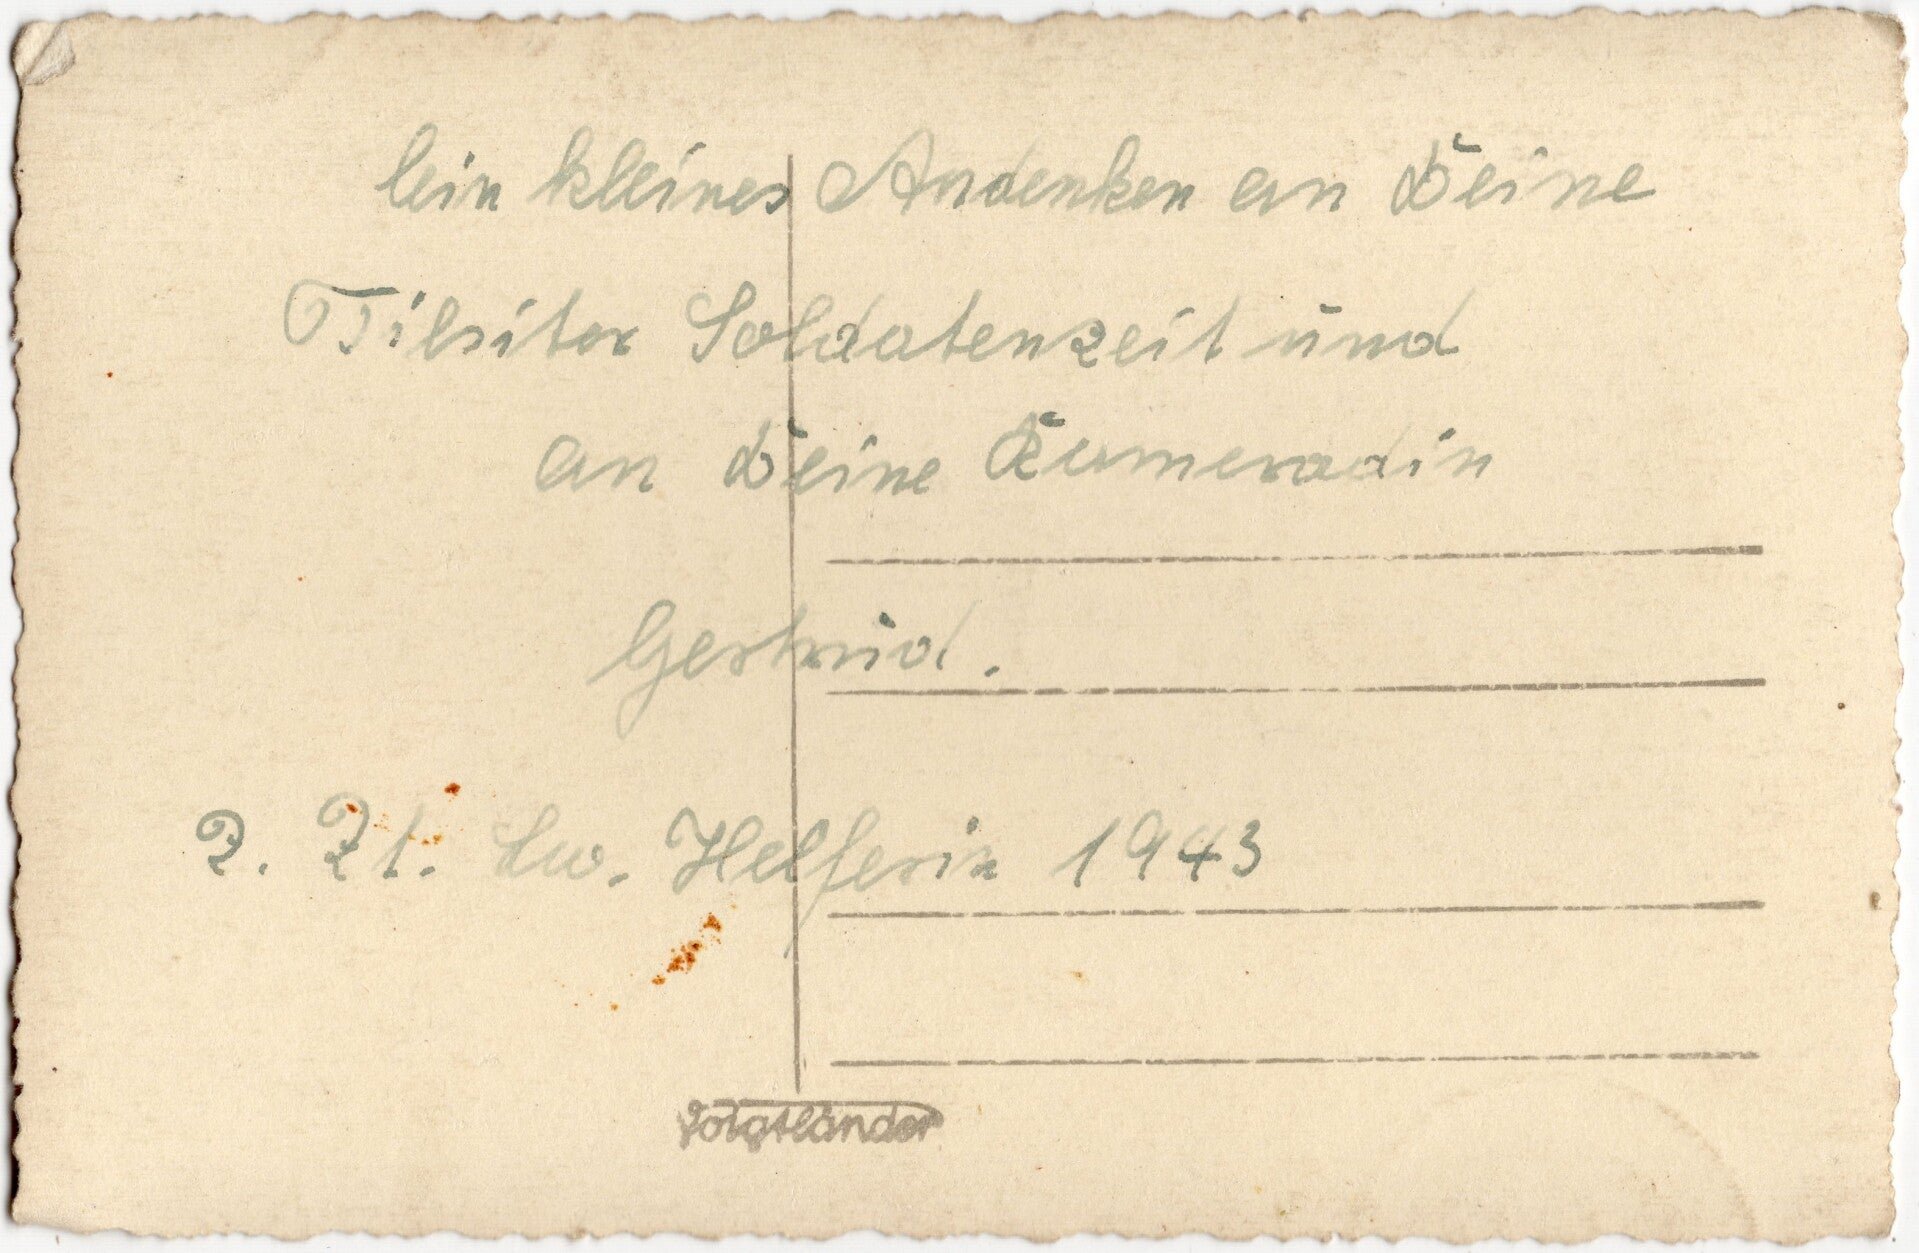 Ein kleines Andenken an Deine
Tilsiter Soldatenzeit und
an Deine Kameradin
Gertrud.
z. Zt. Lw. Helferin 1943
Voigtländer